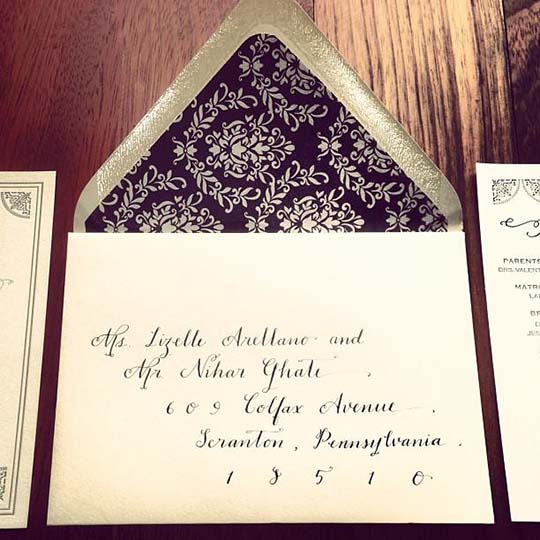 Ms. Lizelle Arellano and
Mr Nihar Ghate
609 Colfax Avenue.
Scranton, Pennsylvania.
18510
PARENTS
DRS. VALENT
MATR
LA
BR